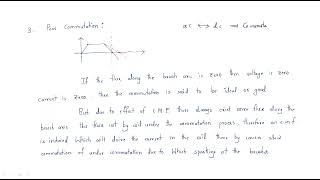 3. Poor Commutation :
ac ⟷ dc ⟹ Commuta
If the flux along the brush axis is zero then voltage is zero
current is zero then the commutation is said to be ideal or good
But due to effect of C.M.F. there always exist some flux along the
brush axis the flux cut by coil under the commutation process. Therefore an e.m.f
is induced which will drive the current in the coil there by causes slow
commutation or under commutation due to which sparking at the brushes